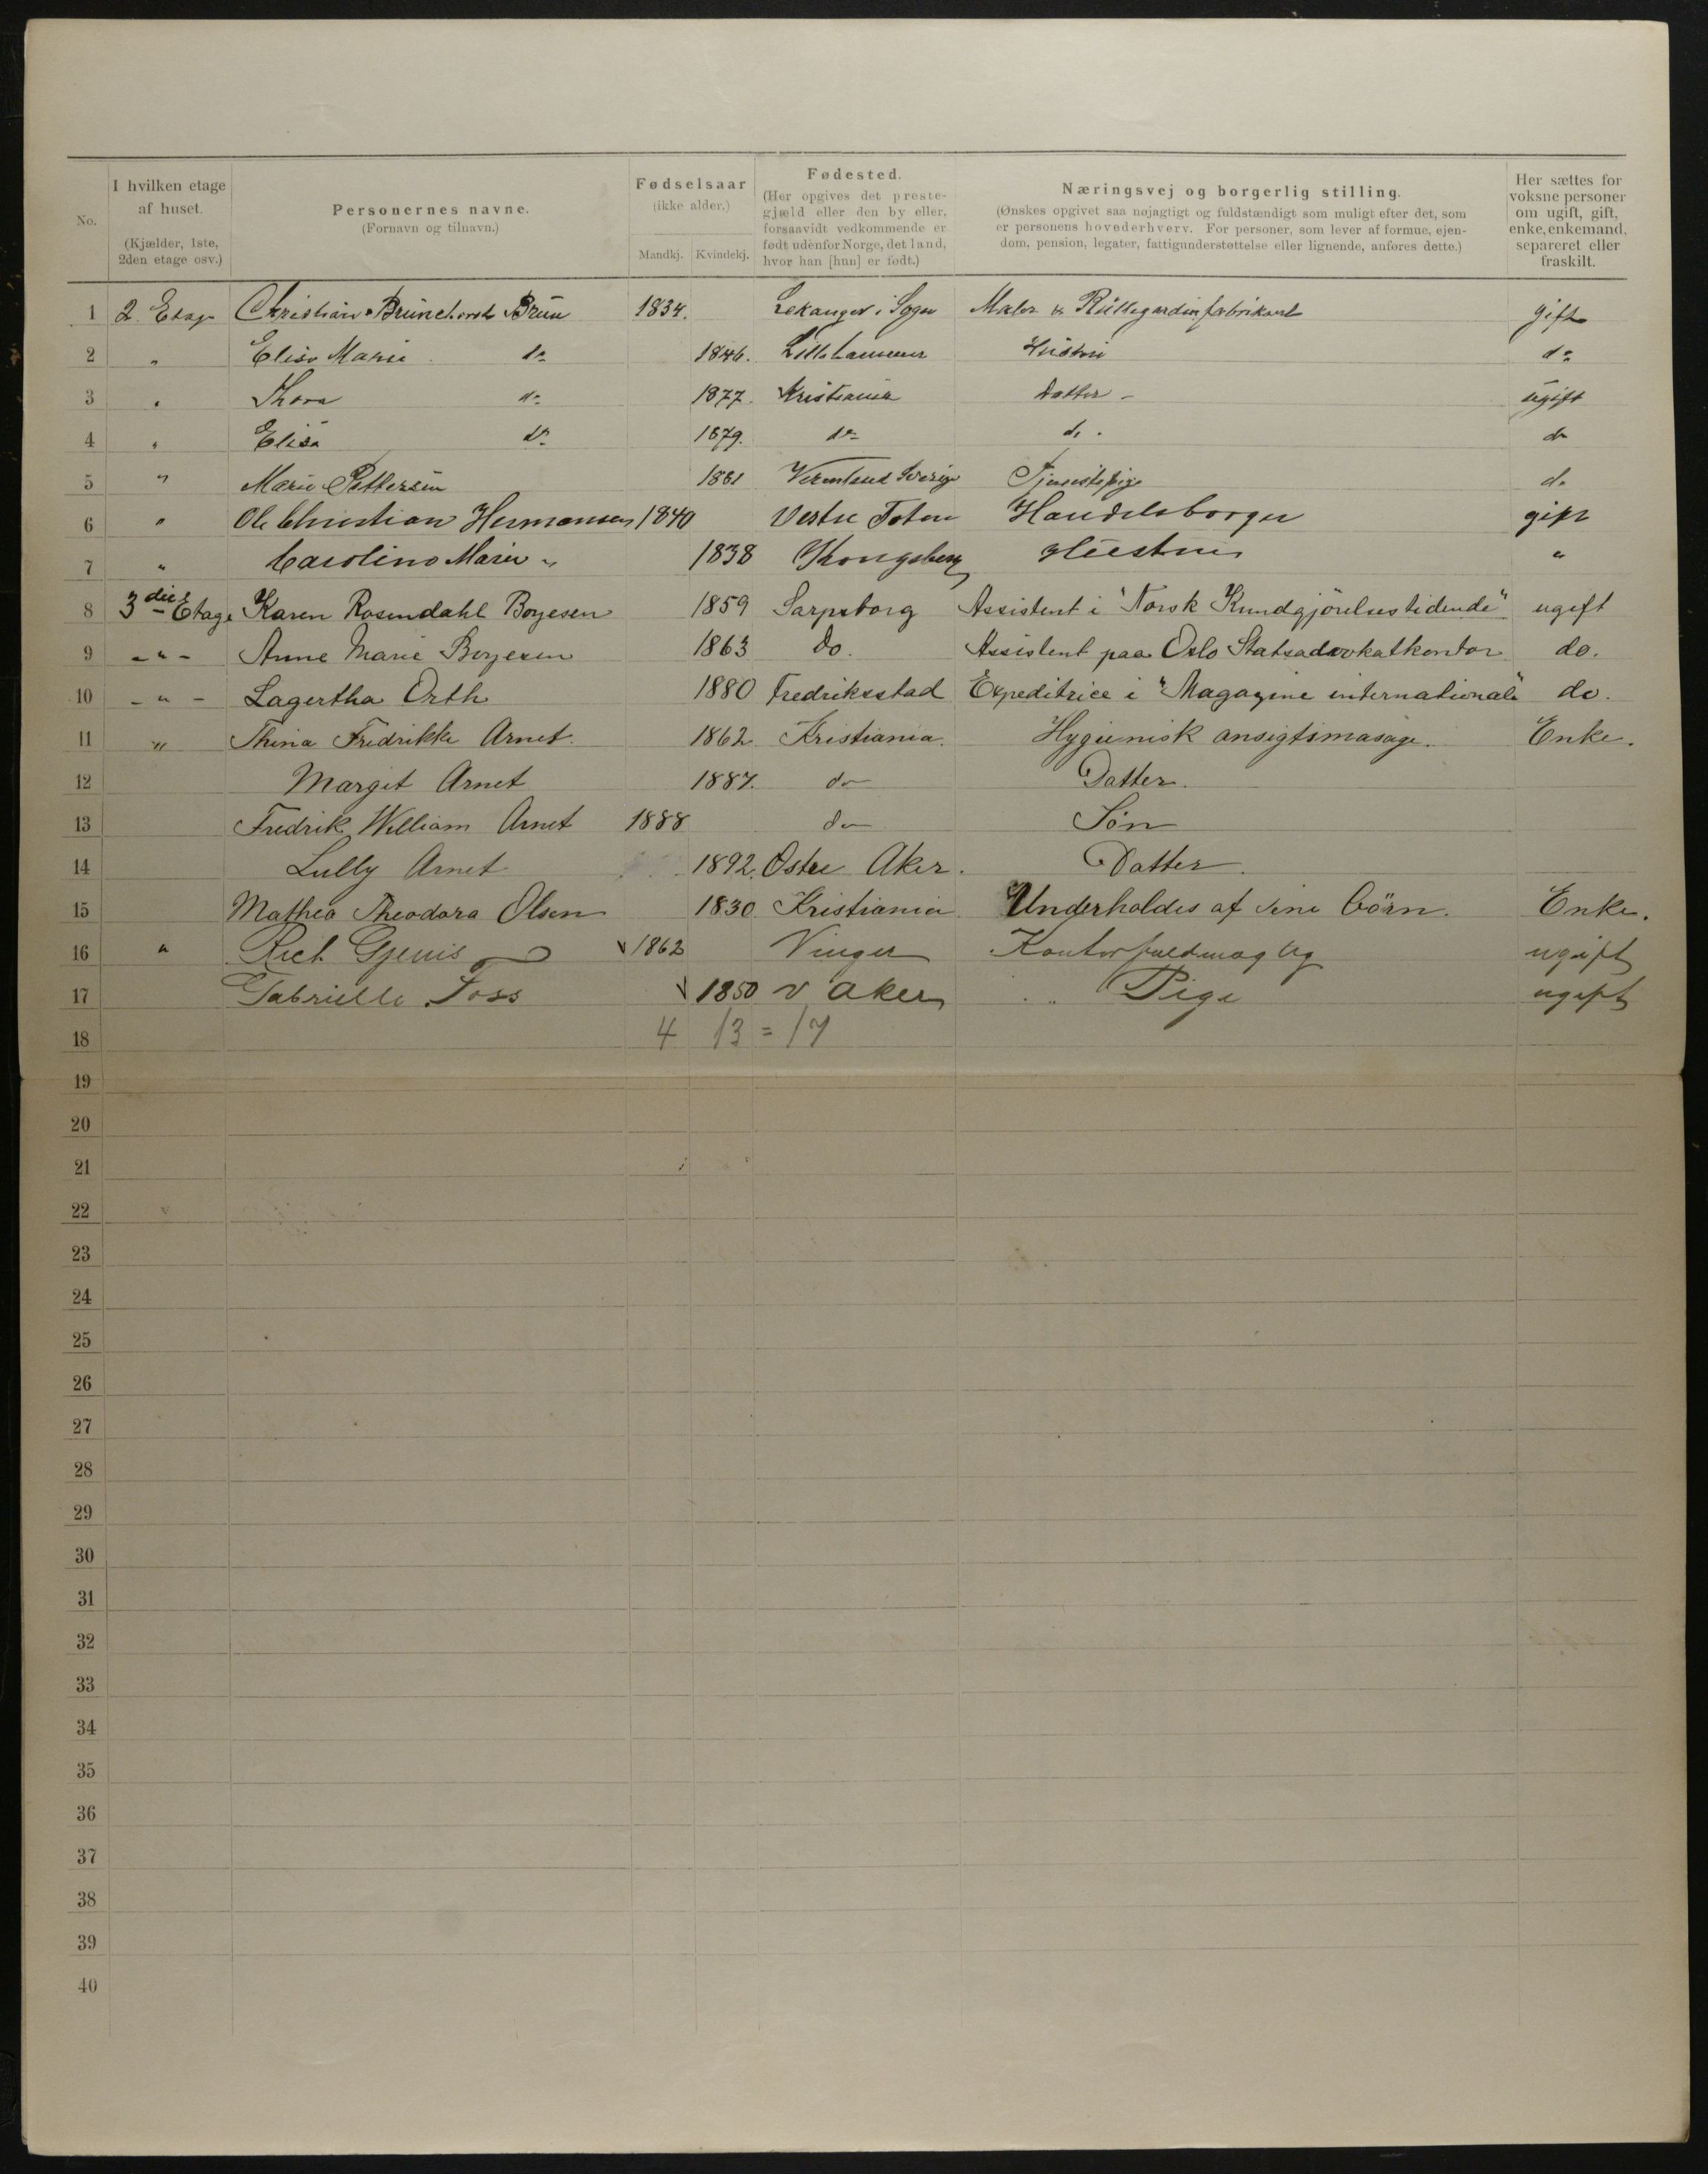 No. I hvilken etage af huset. (Kjælder, 1ste, 2den etage osv.) Personernes navne. (Fornavn og tilnavn.) Fødselsaar (ikke alder.) Mandkj. Kvindekj. Fødested. (Her opgives det prestegjæld eller den by eller, forsaavidt vedkommende er født udenfor Norge, det land, hvor han [hun] er født.) Næringsvej og borgerlig stilling. (Ønskes opgivet saa nøjagtigt og fuldstændigt som muligt efter det, som er personens hovederhverv. For personer, som lever af formue, ejendom, pension, legater, fattigunderstøttelse eller lignende, anføres dette.) Her sættes for voksne personer om ugift, gift, enke, enkemand, separeret eller fraskilt.
1 2. Etage Christian Brunchorst Bruun 1834. Lekanger i Sogn Maler & Rullegardinfabrikant gift
2 " Elise Marie do 1846. Lillehammer Hustru do
3 " Thora do 1877. Kristiania Datter - ugift
4 " Elisa do 1879. do do. do
5 " Marie Pettersen 1881 Vermland Sverige Tjenestepige do
6 " Ole Christian Hermansen 1840 Vestre Toten Handelsborger gift
7 " Caroline Marie " 1838 Kongsberg Hustru "
8 3die Etage Karen Rosendahl Boyesen 1859 Sarpsborg Assistent i "Norsk Kundgjörelsestidende" ugift
9 - " - Anne Marie Boyesen 1863 do. Assistent paa Oslo Statsadvokatkontor do.
10 - " - Lagertha Orth 1880 Fredriksstad Expeditrice i "Magazine international" do.
11 " Thina Fredrikke Arnet. 1862. Kristiania. Hygienisk ansigtsmasage. Enke.
12 Margit Arnet 1887. do Datter.
13 Fredrik William Arnet 1888 do Sön
14 Lully Arnet 1892. Østre Aker. Datter.
15 Mathea Theodora Olsen 1830 Kristiania Underholdes af sine börn. Enke.
16 " Rich. Gjems 1862 Vinger Kontorfuldmægtig ugift
17 Gabrielle Foss 1850 V Aker Pige ugift
18 4 13 = 17
19
20
21
22
23
24
25
26
27
28
29
30
31
32
33
34
35
36
37
38
39
40